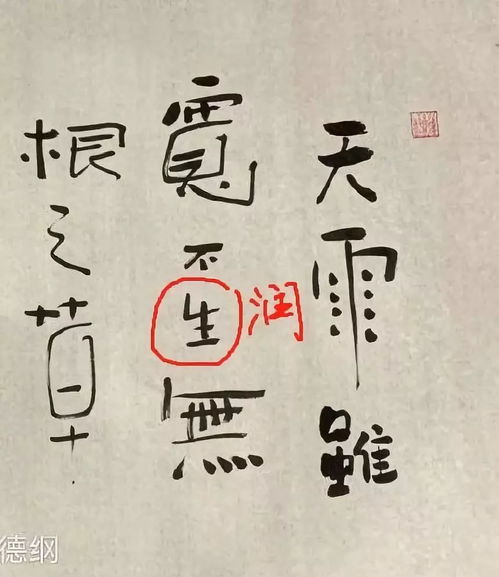 天雨雖
寬不生無
润
根之草
德纲